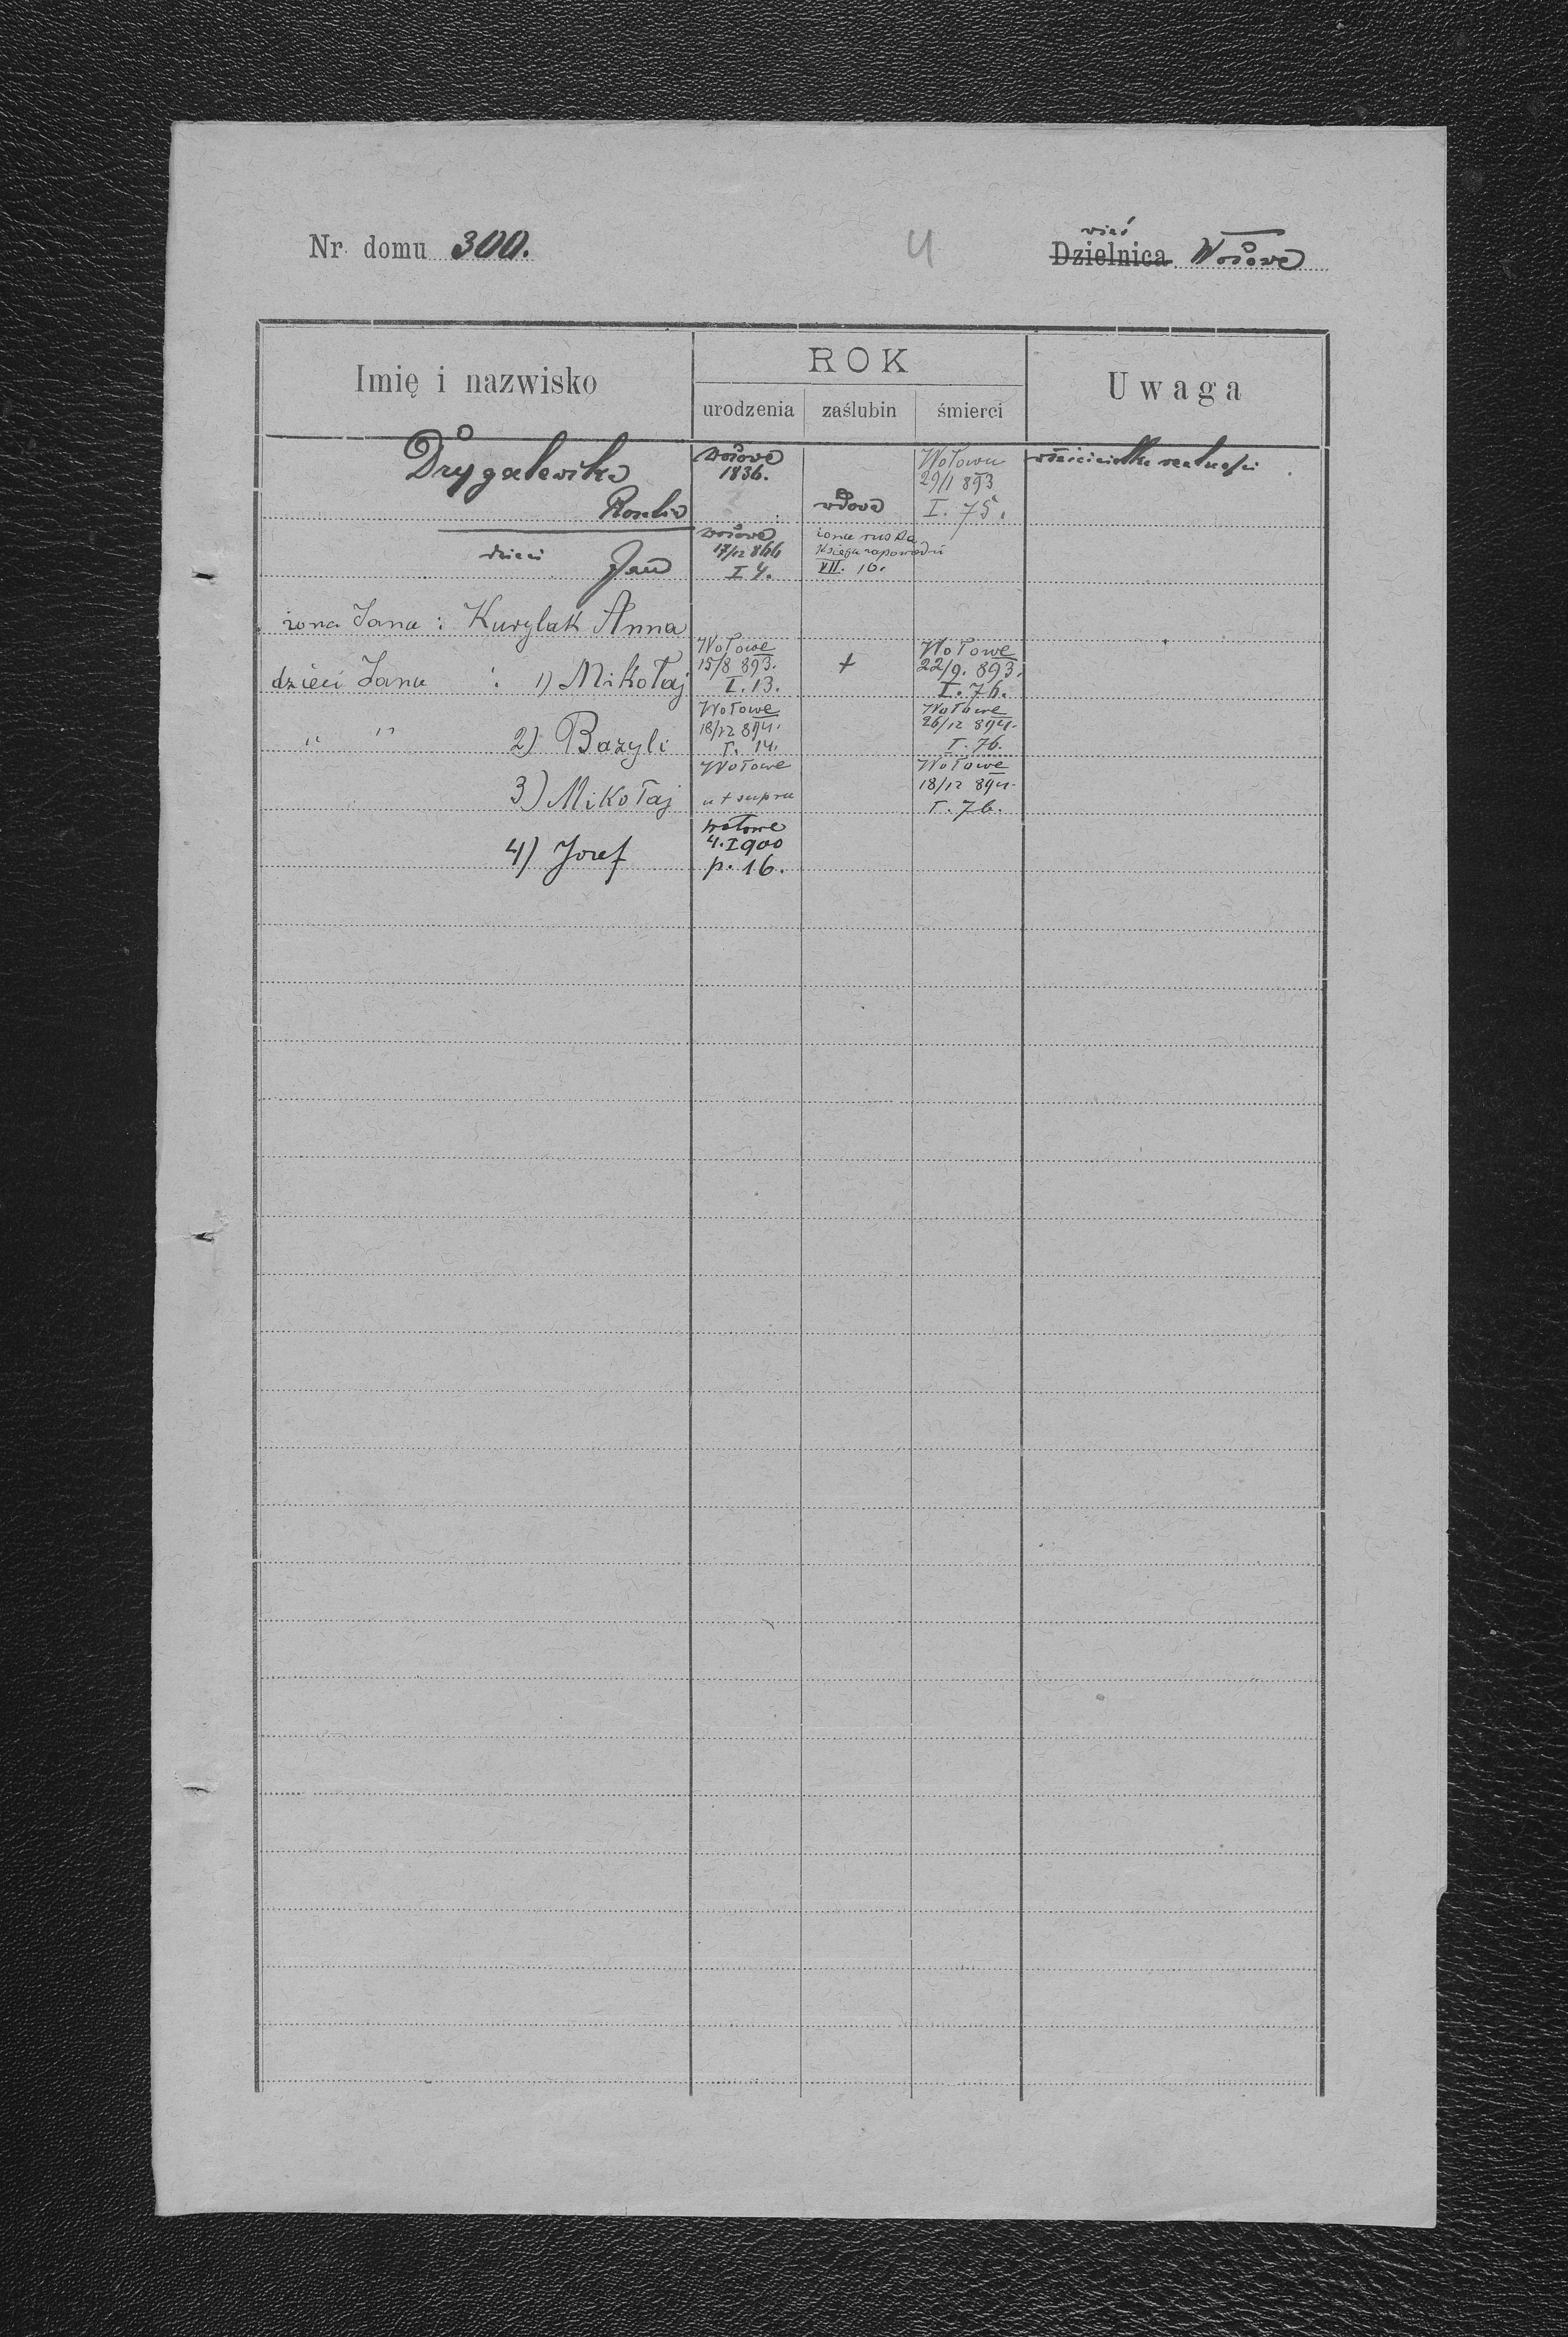 Nr. domu 300.
4
wieś
Dzielnica Wołowe
Imię i nazwisko
ROK
urodzenia zaślubin śmierci
Uwaga
Drygalewska
Rozalia
Wołowe
1836.
wdowa
Wołowe
29/1 893
I. 75.
właścicielka realności
dzieci Jan
Wołowe
17/12 866
I 4.
żona ruska
Księga zapowiedzi
VII. 16.
żona Jana : Kurylak Anna
dzieci Jana : 1) Mikołaj
Wołowe
15/8 893.
I. 13.
+
Wołowe
22/9. 893.
I. 76.
" " 2) Bazyli
Wołowe
18/12 894.
I. 14.
Wołowe
26/12 894.
I. 76.
3) Mikołaj
Wołowe
ut supra
Wołowe
18/12 894.
I. 76.
4) Józef
Wołowe
4. I 900
p. 16.